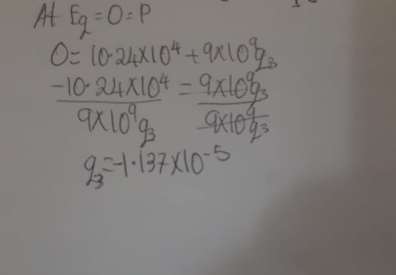 At Eq=0=P
0=10.24X10⁴+9X10⁹q₃
-10.24X10⁴ = 9X10⁹q₃
9X10⁹q₃ 9X10⁹q₃
q₃=-1.137X10⁻⁵